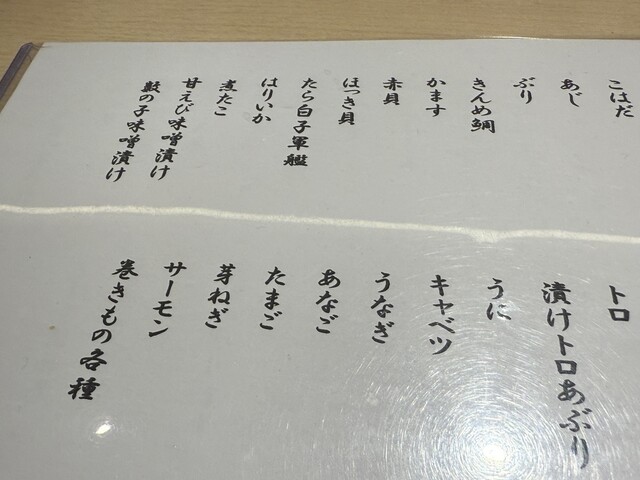 こはだ
あじ
ぶり
きんめ鯛
かます
赤貝
ほっき貝
たら白子軍艦
はりいか
煮たこ
甘えび味噌漬け
数の子味噌漬け
トロ
漬けトロあぶり
うに
キャベツ
うなぎ
あなご
たまご
芽ねぎ
サーモン
巻きもの各種